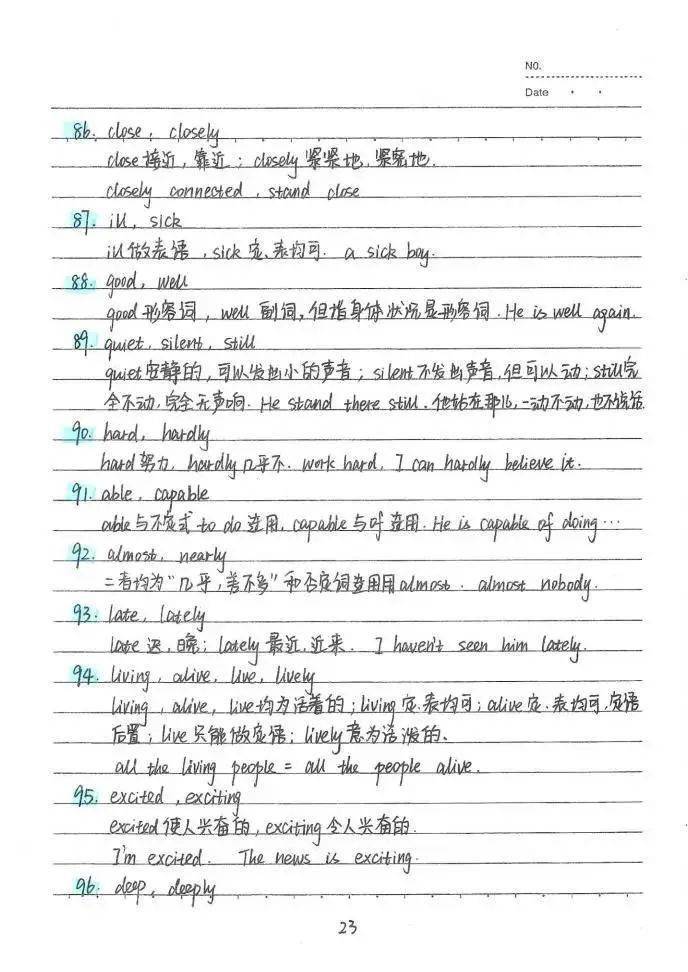 NO.
Date
86. close, closely
close 接近, 靠近; closely 紧紧地, 紧密地.
closely connected, stand close
87. ill, sick
ill 做表语, sick 定、表均可. a sick boy.
88. good, well
good 形容词, well 副词, 但指身体状况是形容词. He is well again.
89. quiet, silent, still
quiet安静的, 可以发出小的声音; silent不发出声音, 但可以动; still完
全不动, 完全无声响. He stand there still. 他站在那儿, 一动不动, 也不说话.
90. hard, hardly
hard 努力, hardly 几乎不. work hard, I can hardly believe it.
91. able, capable
able 与不定式 to do 连用, capable 与of 连用. He is capable of doing…
92. almost, nearly
二者均为“几乎, 差不多”和否定词连用用almost. almost nobody.
93. late, lately
late 迟, 晚; lately 最近, 近来. I haven't seen him lately.
94. living, alive, live, lively
living, alive, live 均为活着的; living 定、表均可; alive 定、表均可, 定语
后置; live 只能做定语; lively 意为活泼的.
all the living people = all the people alive.
95. excited, exciting
excited 使人兴奋的, exciting 令人兴奋的.
I'm excited. The news is exciting.
96. deep, deeply
23